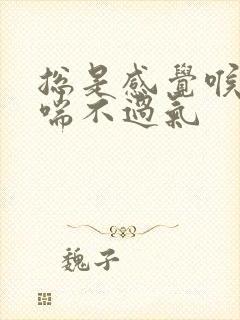 總是感覺喉
喘不過氣
魏子